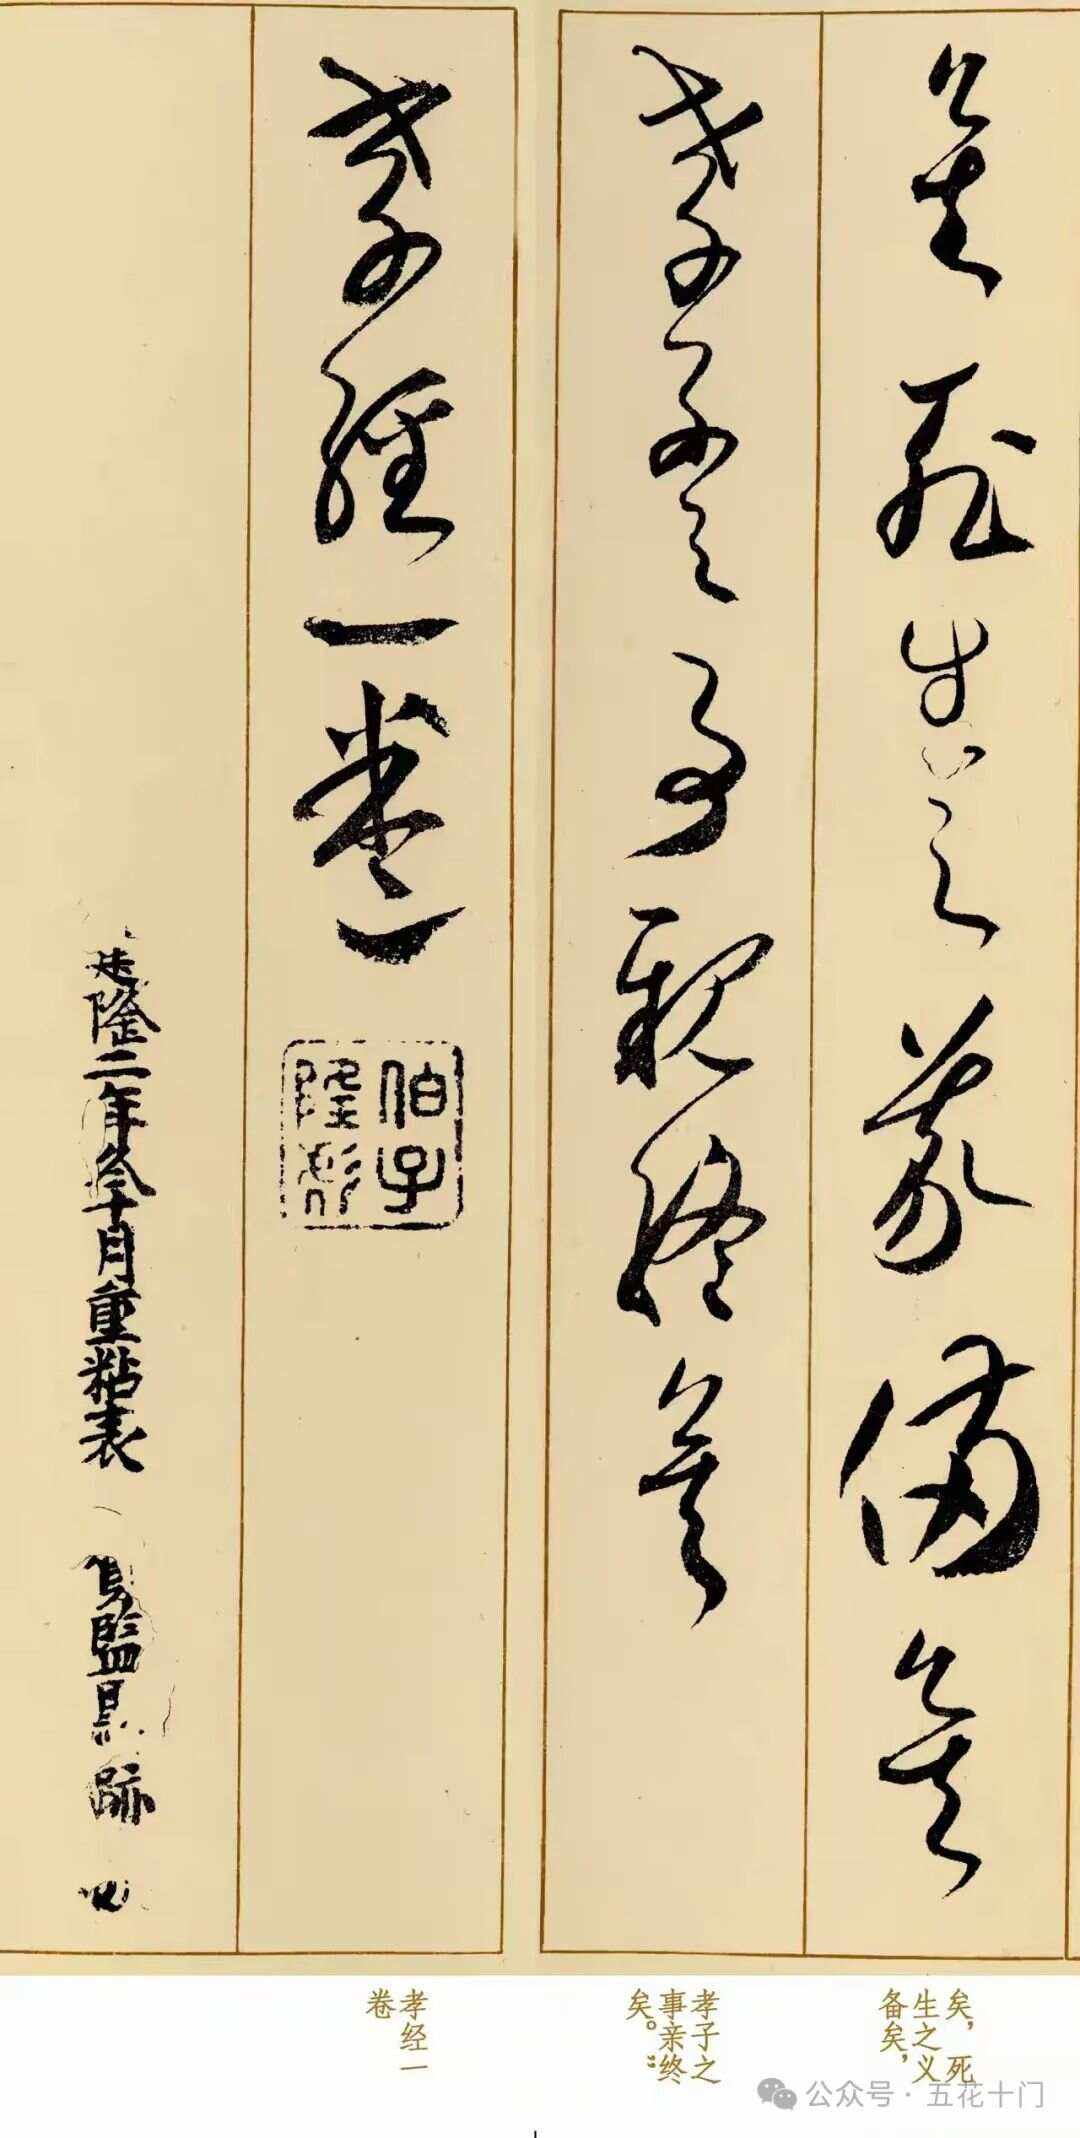 矣死生之義備矣
孝子之事親終矣
孝經一卷
伯子
隆彤
建隆二年冬十月重粘表
賀監墨跡
矣，死
生之义
备矣，
孝子之
事亲终
矣。
孝经一
卷
公众号·五花十门